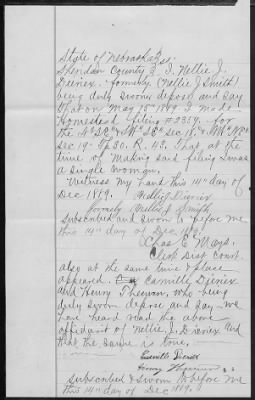 State of Nebraska } ss
Sheridan County } I, Nellie J.
Dierex. formerly (Nellie J Smith)
being duly sworn depose and say
that on May 15" 1889 I made
Homestead filing #2359. for
the N½ SE¼ & Sec 18. &
Sec 19 - Tp 30. R. 43. That at the
time of making said filing I was
a single woman.
Witness my hand this 14" day of
Dec 1889. Nellie J Dierex
formerly Nellie J Smith
subscribed and sworn to before me
this 14" day of Dec 1889.
Chas E Mays.
Clerk Dist Court.
also at the same time & place
appeared. Camille Dierex
and Henry who being
duly sworn depose and say - we
have heard read the above
affidavit of Nellie. J. Dierex and
that the same is true.
Camille Dierex
Henry
subscribed & sworn to before me
this 14" day of Dec 1889.